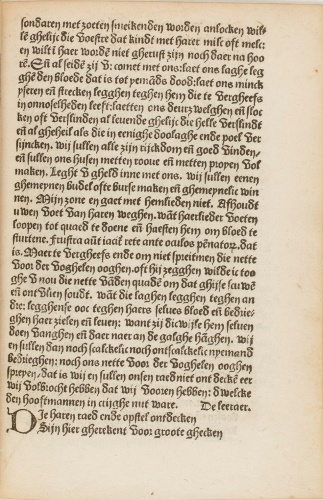 sondaren met zoeten smeikenden worden anlocken wil-
le ghelijc die voestre dat kindt met harer milc oft melc:
en wilt i haer wordē niet gherust zijn noch daer na hoo
rē. En̄ al seidē zij v: comet met ons: laet ons laghe leg
ghē den bloede dat is tot yemāds dood: laet ons minck
yseren en̄ strecken legghen teghen hem die te vergheefs
in onnoselheden leeft: laetten ons deurzwelghen en̄ sloc
ken oft verslinden al levende ghelijc die helle verslindt
en̄ al gheheil als die in eenighe doolaghe ende poel ver
sijncken. wij sullen alle zijn rijckdom en̄ goed vinden,
en̄ sullen ons husen metten roove en̄ metten proyen vol
maken. Leght v gheld inne met ons. wij sullen eenen
ghemeynen budel ofte burse maken en̄ ghemeynelic win
nen. Mijn zone en gaet met hemlieden niet. Afhoudt
uwen voet van haren weghen. wāt haerlieder voeten
loopen tot quaed te doene en̄ haesten hem om bloed te
sturtene. Frustra aūt iacit̄ rete ante oculos pēnatorꝝ. dat
is. Maer te vergheefs ende om niet spreitmen die nette
voor der voghelen ooghen. oft hij zegghen wilde ic too
ghe v nou die nette vādēn quadēn om dat ghijse scuwē
en̄ ontvlien soudt. wāt die laghen legghen teghen an
dre: legghense oec teghen haers selves bloed en̄ bedrie-
ghen haer zielen en̄ leven: want zij dicwijle hem selven
doen vanghen en̄ daer naer an de galghe hāghen. wij
en sullen dan noch scalckelic noch onscalckelic nyemand
bedrieghen: noch ons nette voor der voghelen ooghen
spreyen, dat is wij en sullen onsen raed niet ontdeckē eer
wij volbrocht hebben dat wij vooren hebben: dwelcke
den hooftmannen in crijghe nut ware. De leeraer.
Die haren raed ende opstel ontdecken
Sijn hier gherekent voor groote ghecken